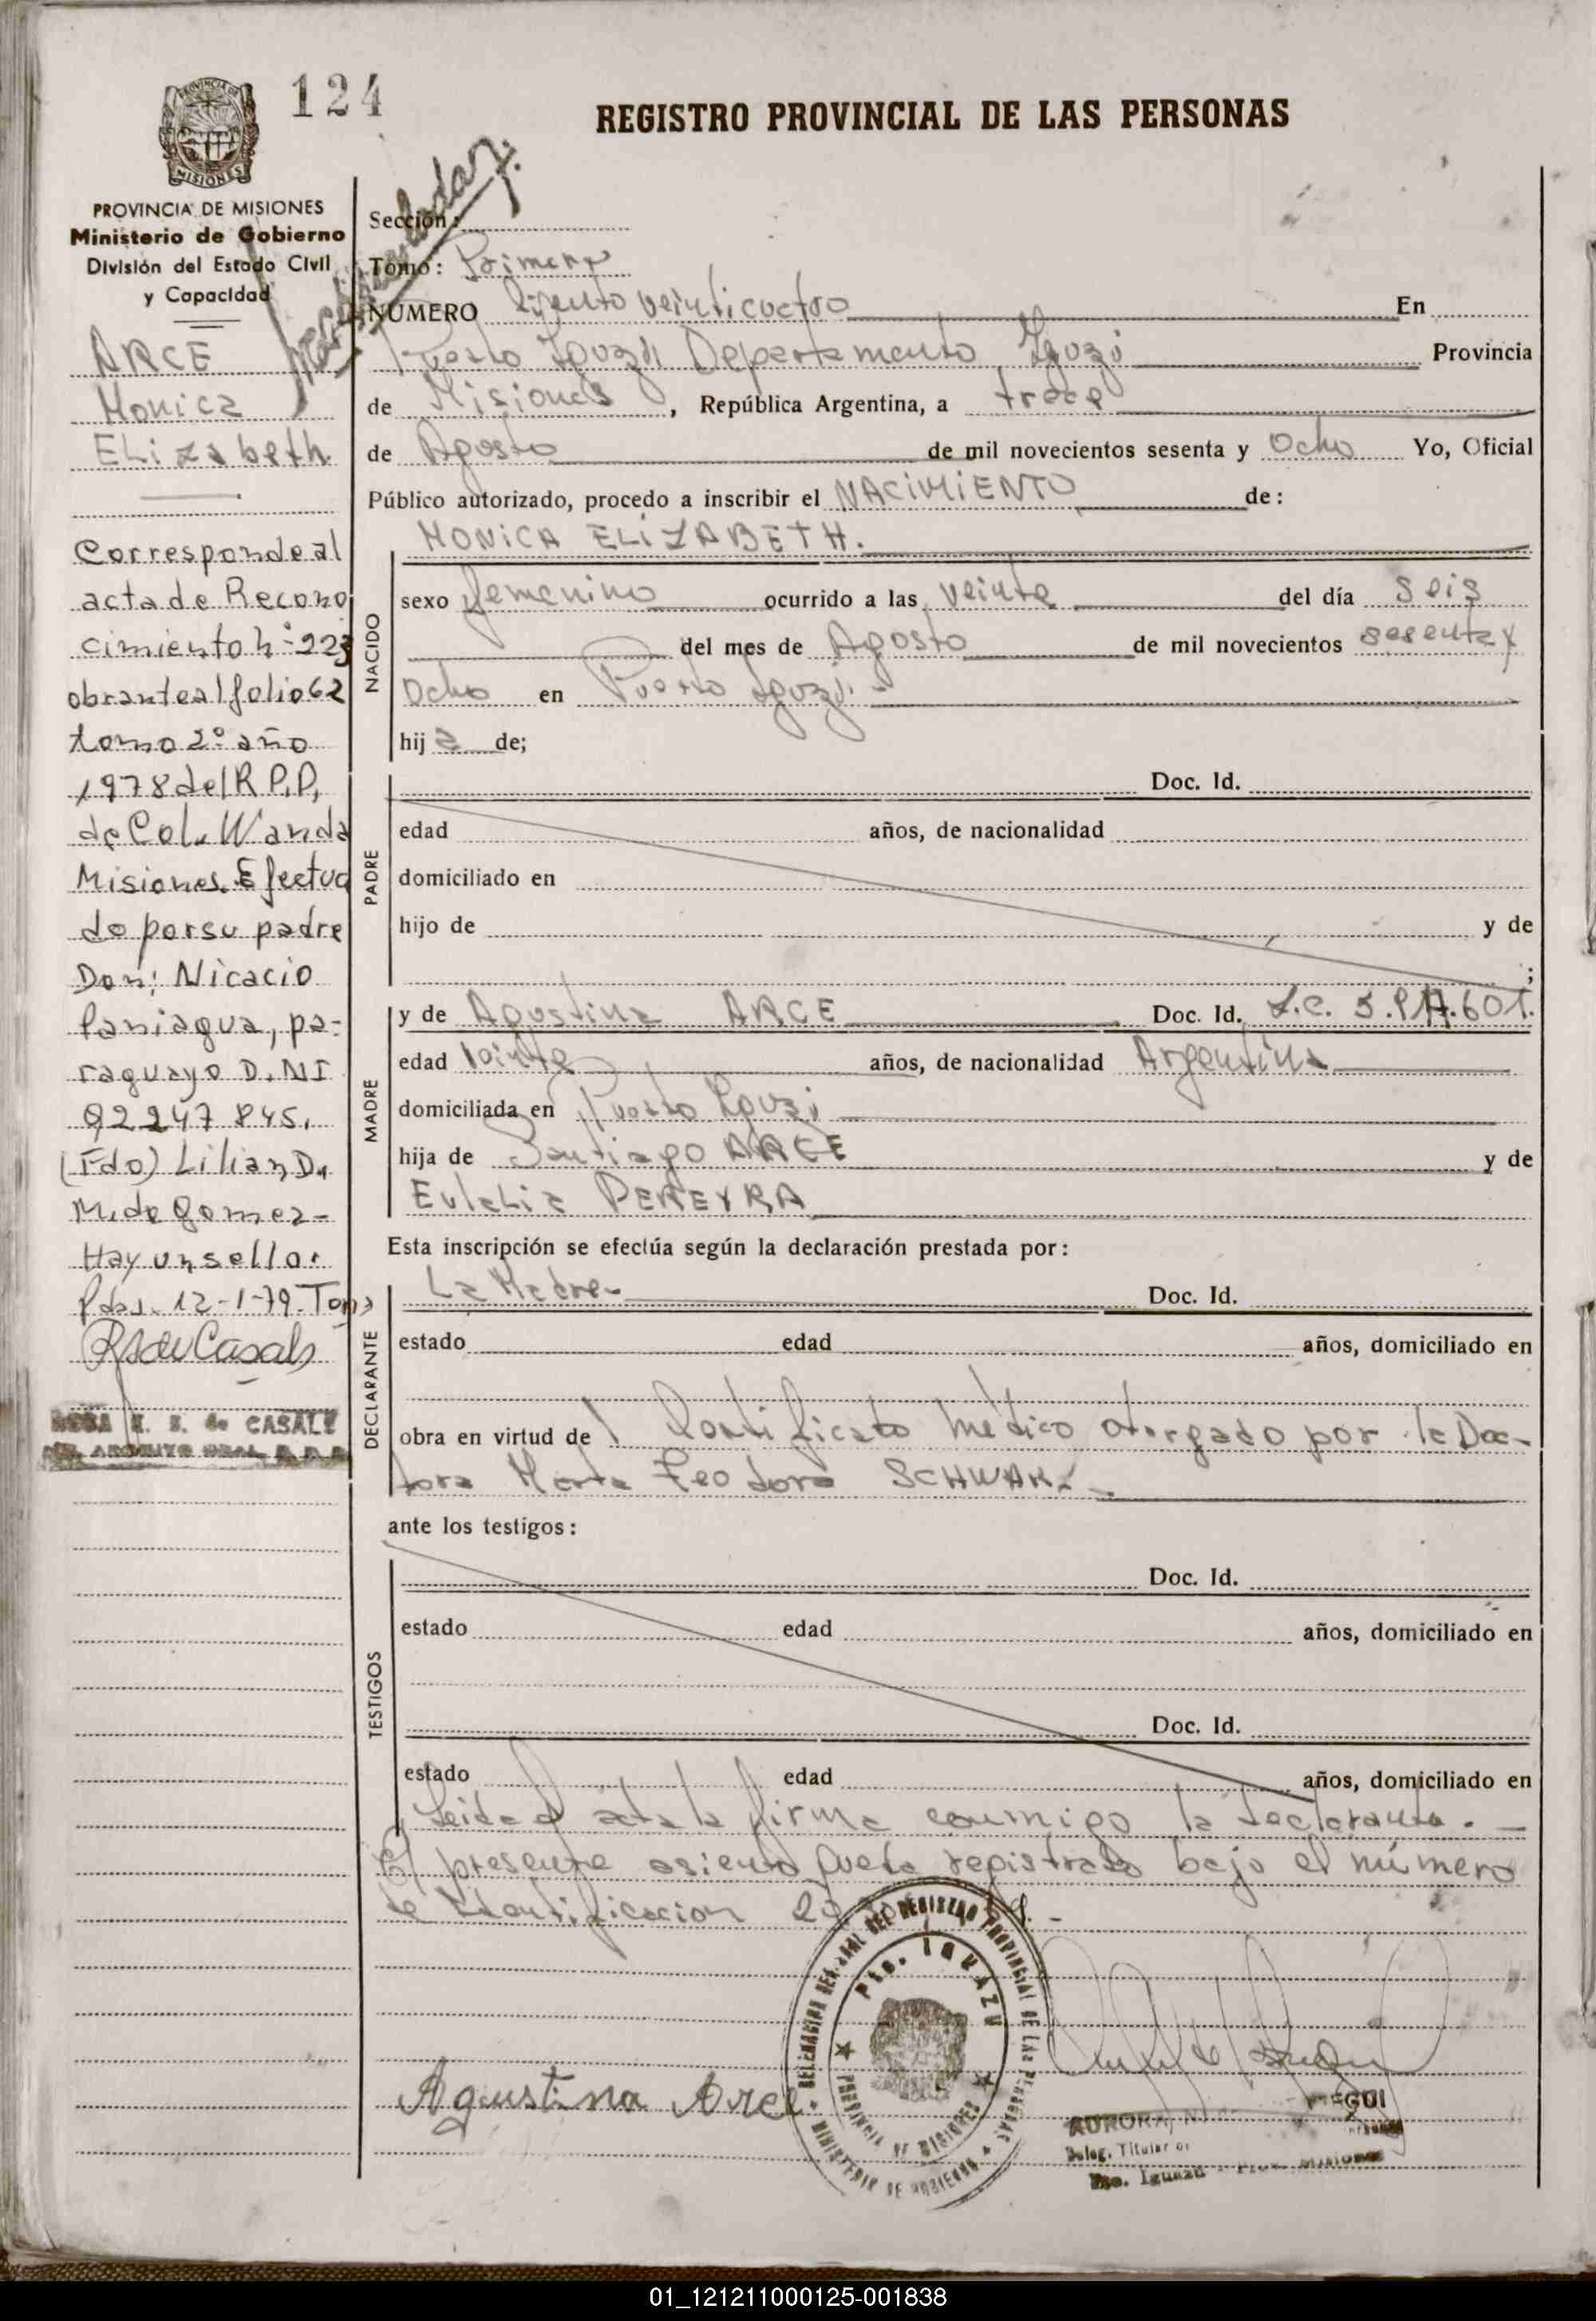 124
REGISTRO PROVINCIAL DE LAS PERSONAS
PROVINCIA DE MISIONES
Ministerio de Gobierno
División del Estado Civil
y Capacidad
ARCE
Monica
ELizabeth
Corresponde al
acta de Recono
cimiento nº 223
obrante al folio 62
tomo 2º año
1978 del R.P.P.
de Col. Wanda
Misiones. Efectua
do por su padre
Don: Nicacio
Paniagua, pa-
raguayo D.NI
92247845.
(Fdo) Lilian D.
M. de Gomez-
Hay un sello.
Pdas. 12-1-79.
RS de Casals
ROSA E. S. de CASALS
Sección:
Tomo: Primero
NÚMERO Ciento veinticuatro En
Puerto Iguazú Departamento Iguazú Provincia
de Misiones, República Argentina, a trece
de Agosto de mil novecientos sesenta y Ocho Yo, Oficial
Público autorizado, procedo a inscribir el NACIMIENTO de:
MONICA ELIZABETH.
NACIDO
sexo femenino ocurrido a las veinte del día seis
del mes de Agosto de mil novecientos sesenta y
Ocho en Puerto Iguazú.-
hija de;
PADRE
Doc. Id.
edad años, de nacionalidad
domiciliado en
hijo de y de
;
MADRE
y de Agustina ARCE Doc. Id. L.C. 601.
edad veinte años, de nacionalidad Argentina
domiciliada en Puerto Iguazú
hija de Santiago ARCE y de
Eulalia PEREYRA
Esta inscripción se efectúa según la declaración prestada por:
DECLARANTE
La Madre.- Doc. Id.
estado edad años, domiciliado en
obra en virtud de Certificado Médico otorgado por la Doc-
tora Marta Teodora SCHWARZ.-
ante los testigos:
TESTIGOS
Doc. Id.
estado edad años, domiciliado en
Doc. Id.
estado edad años, domiciliado en
Leida el acta la firma conmigo la declarante.-
El presente asiento queda registrado bajo el número
de Identificacion
DEL REGISTRO PROVINCIAL DE LAS PERSONAS
Pto. IGUAZU
PROVINCIA DE MISIONES
MINISTERIO DE GOBIERNO
Agustina Arce.
AURORA
Deleg. Titular
Pto. Iguazú - Prov. Misiones
01_121211000125-001838